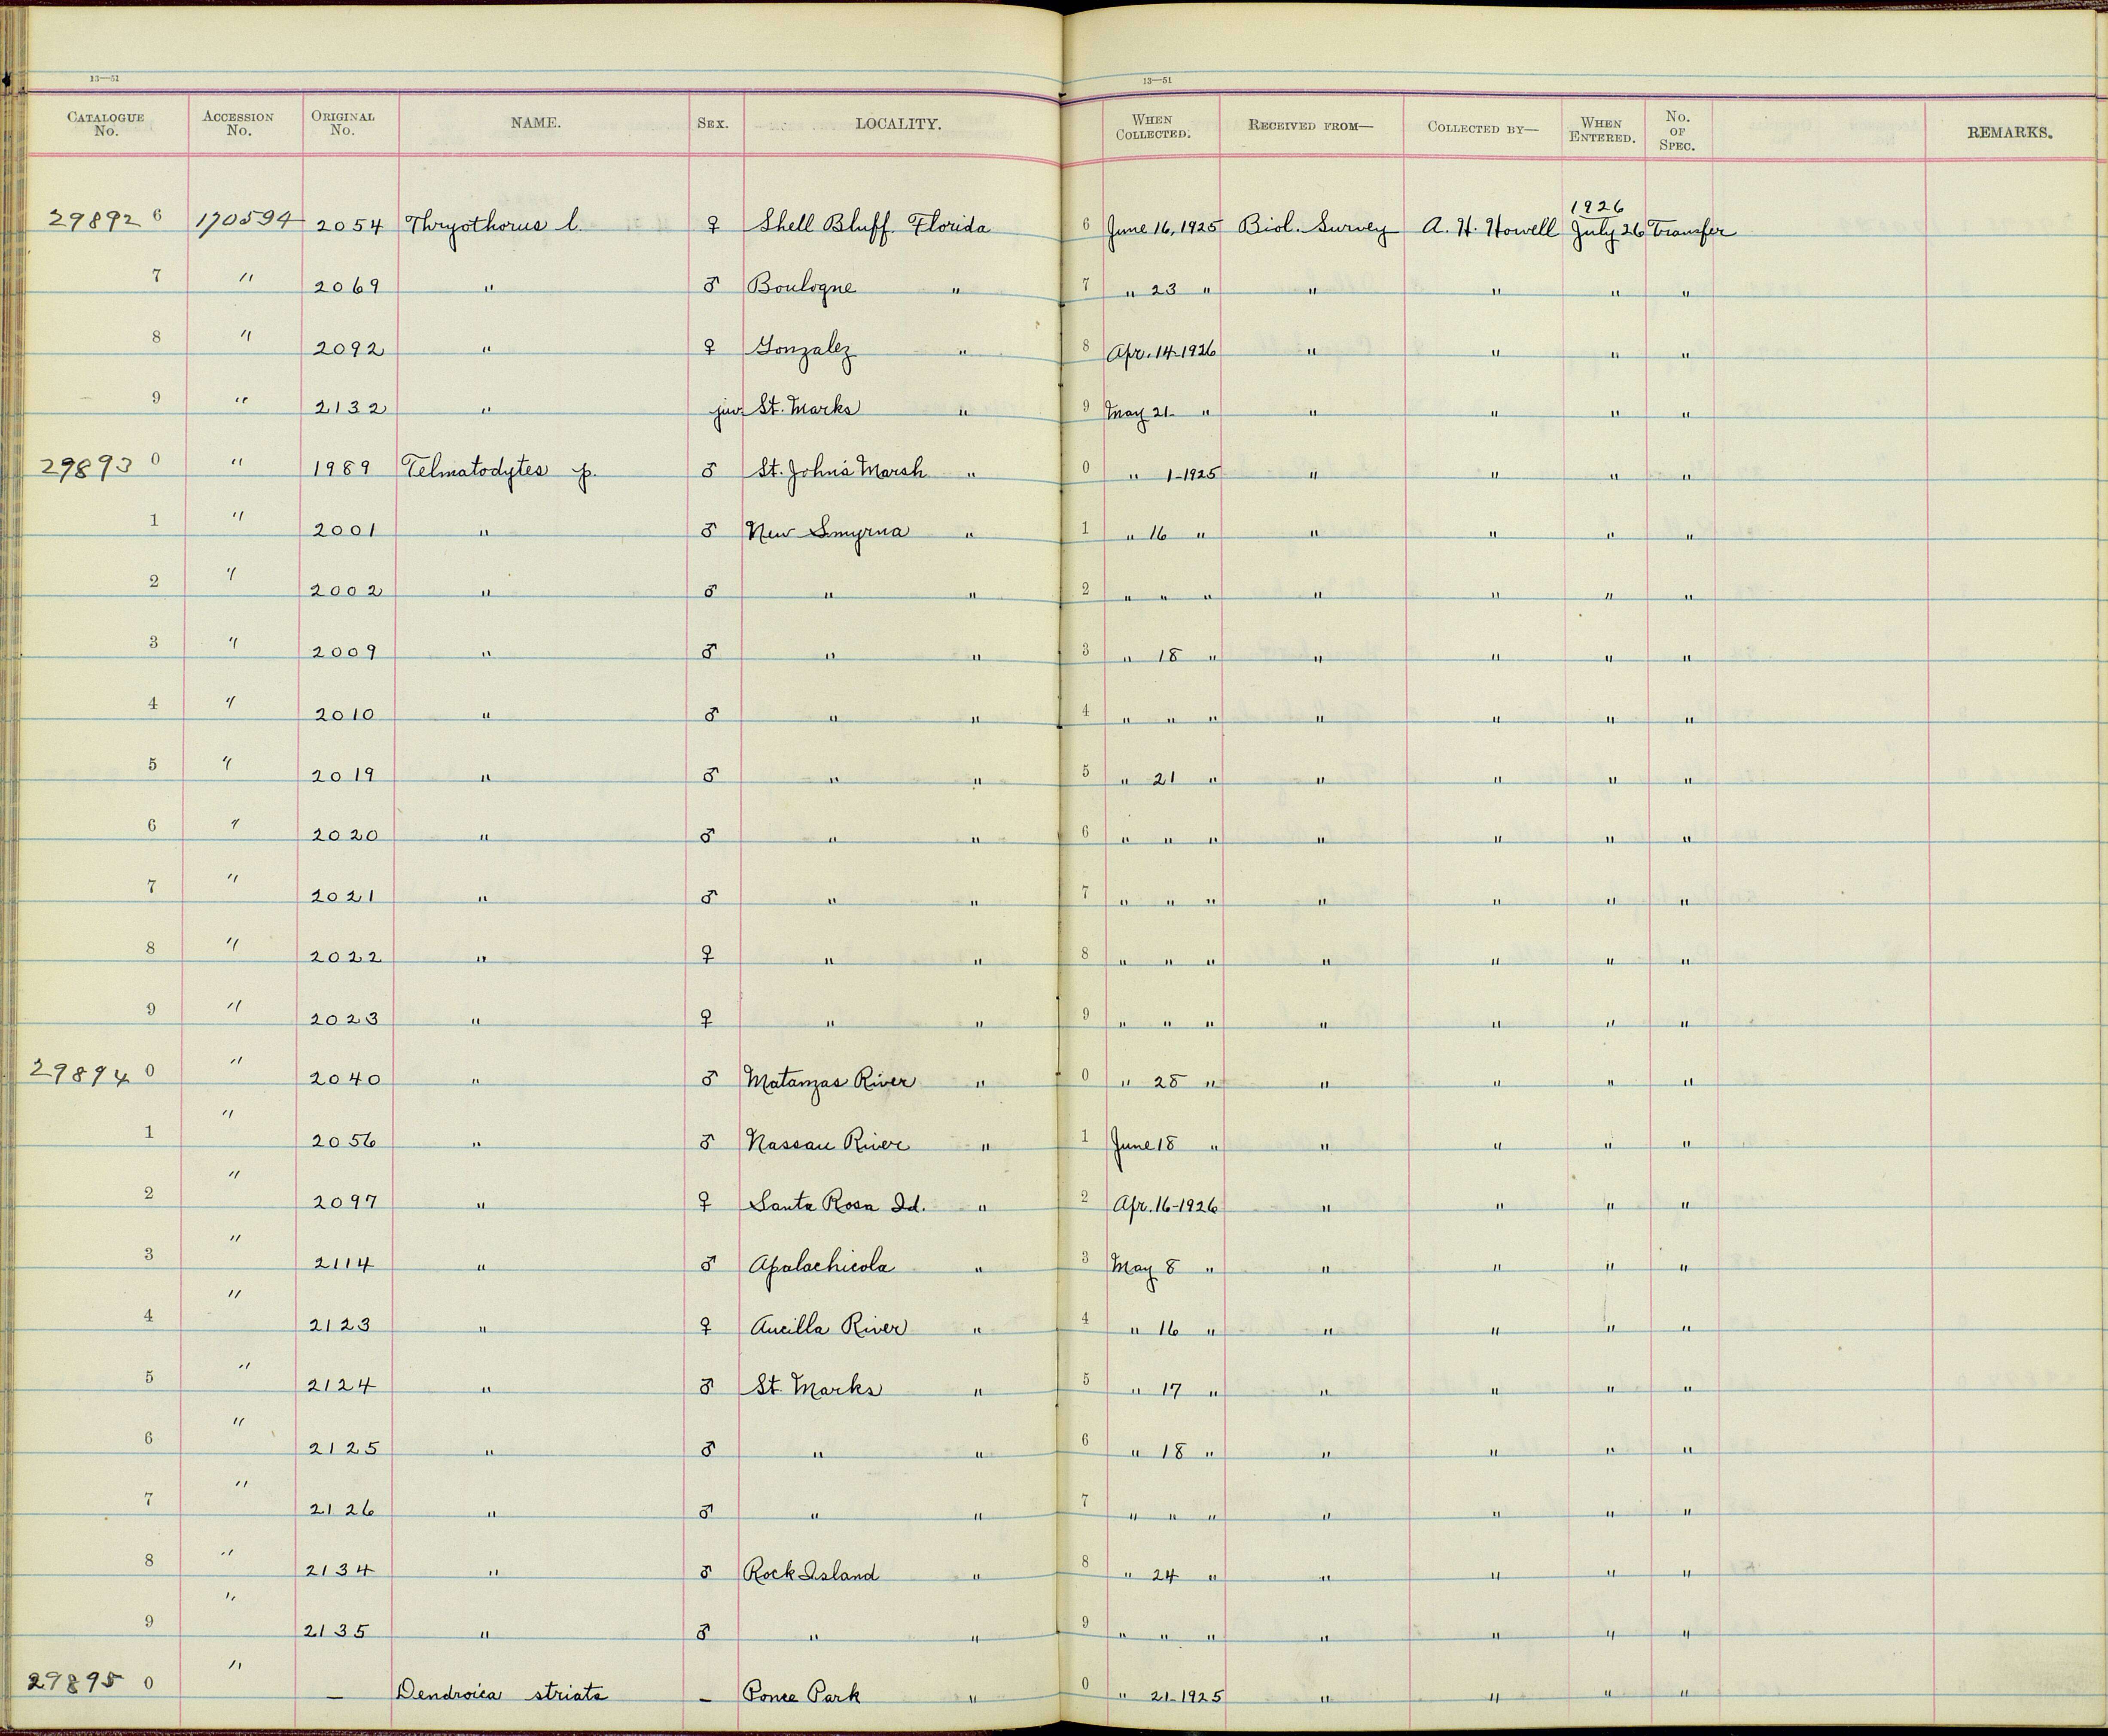 13—51 13—51
CATALOGUE No. ACCESSION No. ORIGINAL No. NAME. SEX. LOCALITY. WHEN COLLECTED. RECEIVED FROM— COLLECTED BY— WHEN ENTERED. No. OF SPEC. REMARKS.
29892 6 170594 2054 Thryothorus l. ♀ Shell Bluff Florida 6 June 16, 1925 Biol. Survey A. H. Howell 1926 July 26 Transfer
7 " 2069 " ♂ Boulogne " 7 " 23 " " " " "
8 " 2092 " ♀ Gonzalez " 8 Apr. 14-1926 " " " "
9 " 2132 " juv. St. Marks " 9 May 21 " " " " "
29893 0 " 1989 Telmatodytes p. ♂ St. Johns Marsh " 0 " 1-1925 " " " "
1 " 2001 " ♂ New Smyrna " 1 " 16 " " " " "
2 " 2002 " ♂ " " 2 " " " " " " "
3 " 2009 " ♂ " " 3 " 18 " " " " "
4 " 2010 " ♂ " " 4 " " " " " " "
5 " 2019 " ♂ " " 5 " 21 " " " " "
6 " 2020 " ♂ " " 6 " " " " " " "
7 " 2021 " ♂ " " 7 " " " " " " "
8 " 2022 " ♀ " " 8 " " " " " " "
9 " 2023 " ♀ " " 9 " " " " " " "
29894 0 " 2040 " ♂ Matanzas River " 0 " 28 " " " " "
1 " 2056 " ♂ Nassau River " 1 June 18 " " " " "
2 " 2097 " ♀ Santa Rosa Id. " 2 Apr. 16-1926 " " " "
3 " 2114 " ♂ Apalachicola " 3 May 8 " " " " "
4 " 2123 " ♀ Aucilla River " 4 " 16 " " " " "
5 " 2124 " ♂ St. Marks " 5 " 17 " " " " "
6 " 2125 " ♂ " " 6 " 18 " " " " "
7 " 2126 " ♂ " " 7 " " " " " " "
8 " 2134 " ♂ Rock Island " 8 " 24 " " " " "
9 " 2135 " ♂ " " 9 " " " " " " "
29895 0 " — Dendroica striata — Ponce Park " 0 " 21-1925 " " " "